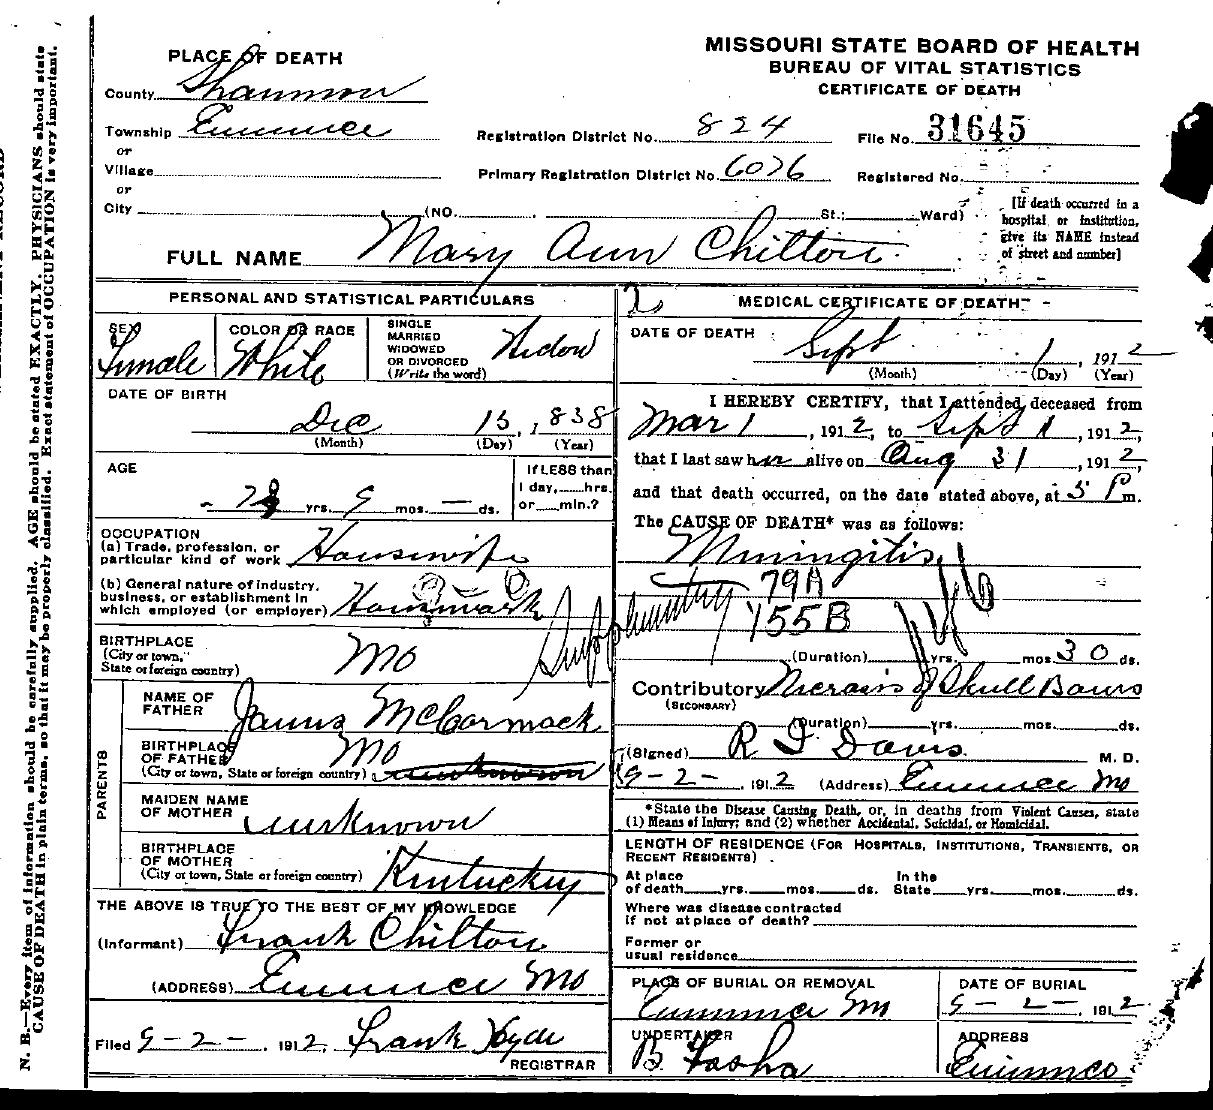 MISSOURI STATE BOARD OF HEALTH
BUREAU OF VITAL STATISTICS
CERTIFICATE OF DEATH
PLACE OF DEATH
County Shannon
Township Eminence
or
Village
or
City (NO. St.; Ward)
Registration District No. 824 File No. 31645
Primary Registration District No. 6076 Registered No.
[If death occurred in a
hospital or institution,
give its NAME instead
of street and number]
FULL NAME Mary Ann Chilton
PERSONAL AND STATISTICAL PARTICULARS
SEX
Female
COLOR OR RACE
White
SINGLE
MARRIED
WIDOWED
OR DIVORCED
(Write the word)
Widow
DATE OF BIRTH
Dec 15, 1838
(Month) (Day) (Year)
AGE
yrs. 9 mos. — ds.
If LESS than
1 day, hrs.
or min.?
OCCUPATION
(a) Trade, profession, or
particular kind of work Housewife
(b) General nature of industry,
business, or establishment in
which employed (or employer) Housework
BIRTHPLACE
(City or town,
State or foreign country) Mo
PARENTS
NAME OF
FATHER James McCormack
BIRTHPLACE
OF FATHER Mo
(City or town, State or foreign country) unknown
MAIDEN NAME
OF MOTHER unknown
BIRTHPLACE
OF MOTHER
(City or town, State or foreign country) Kentuckey
THE ABOVE IS TRUE TO THE BEST OF MY KNOWLEDGE
(Informant) Frank Chilton
(ADDRESS) Eminence Mo
Filed 9-2-, 1912, Frank Hyde
REGISTRAR
MEDICAL CERTIFICATE OF DEATH
DATE OF DEATH
Sept 1, 1912
(Month) (Day) (Year)
I HEREBY CERTIFY, that I attended deceased from
Mar 1, 1912, to Sept 1, 1912,
that I last saw her alive on Aug 31, 1912,
and that death occurred, on the date stated above, at 5 P m.
The CAUSE OF DEATH* was as follows:
Miningitis
79A
Supplementry 155B
(Duration) yrs. mos. 30 ds.
Contributory Nicrosis of Skull Bones
(SECONDARY)
(Duration) yrs. mos. ds.
(Signed) R I Davis M. D.
9-2-, 1912 (Address) Eminence Mo
*State the Disease Causing Death, or, in deaths from Violent Causes, state
(1) Means of Injury; and (2) whether Accidental, Suicidal, or Homicidal.
LENGTH OF RESIDENCE (FOR HOSPITALS, INSTITUTIONS, TRANSIENTS, OR
RECENT RESIDENTS).
At place In the
of death yrs. mos. ds. State yrs. mos. ds.
Where was disease contracted
if not at place of death?
Former or
usual residence
PLACE OF BURIAL OR REMOVAL
Eminence Mo
DATE OF BURIAL
9-2-1912
UNDERTAKER
B Fasha
ADDRESS
Eminence
N. B.—Every item of information should be carefully supplied. AGE should be stated EXACTLY. PHYSICIANS should state
CAUSE OF DEATH in plain terms, so that it may be properly classified. Exact statement of OCCUPATION is very important.